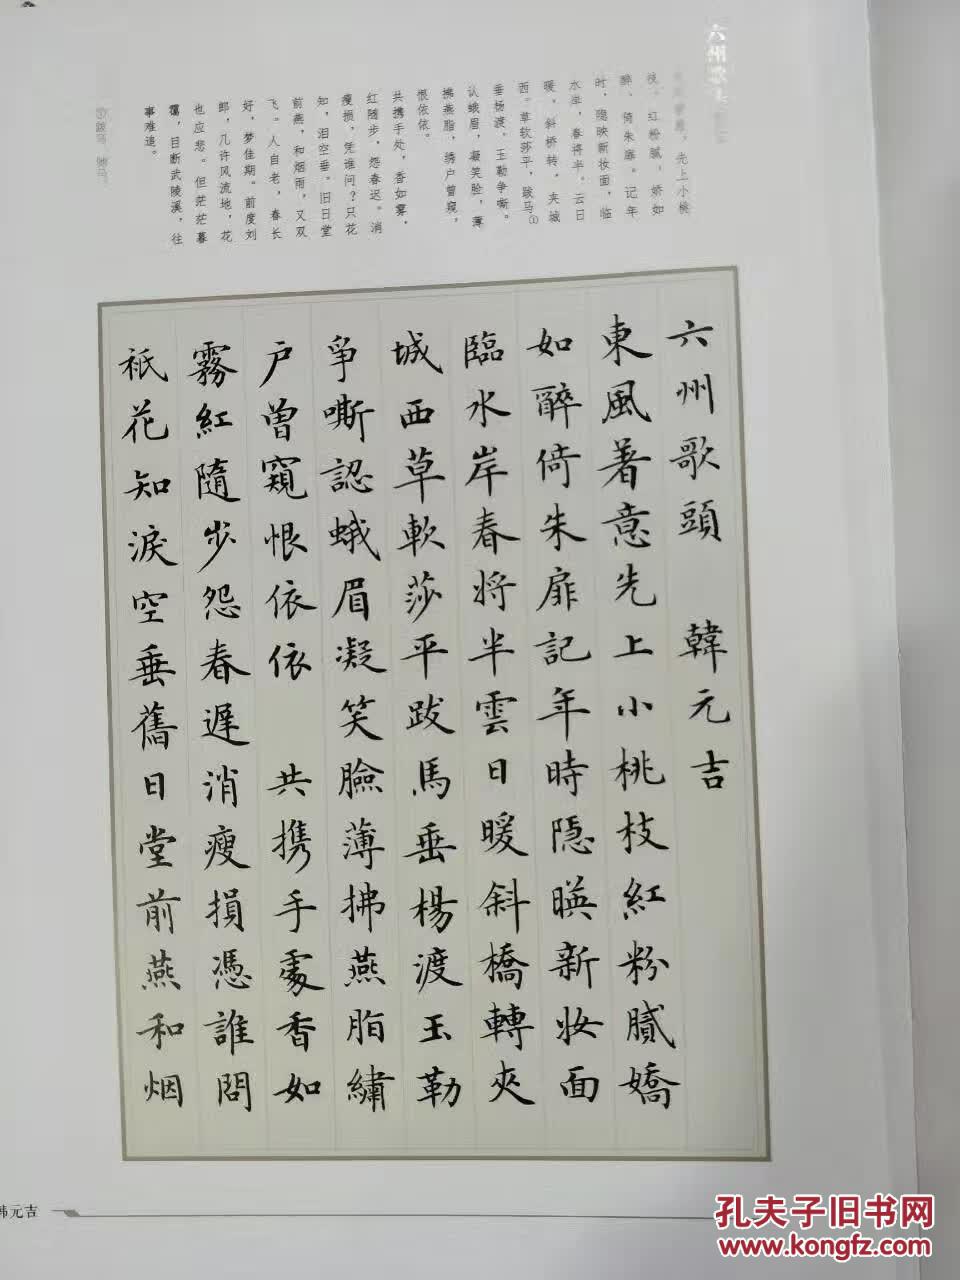 六州歌头
东风著意，先上小桃
枝。红粉腻，娇如
醉，倚朱扉。记年
时，隐映新妆面，临
水岸，春将半。云日
暖，斜桥转，夹城
西。草软莎平，跋马①
垂杨渡，玉勒争嘶。
认蛾眉，凝笑脸，薄
拂燕脂，绣户曾窥，
恨依依。
共携手处，香如雾，
红随步，怨春迟。消
瘦损，凭谁问？只花
知，泪空垂。旧日堂
前燕，和烟雨，又双
飞。人自老，春长
好，梦佳期。前度刘
郎，几许风流地，花
也应悲。但茫茫暮
霭，目断武陵溪，往
事难追。
六州歌頭 韓元吉
東風著意先上小桃枝紅粉膩嬌
如醉倚朱扉記年時隐暎新妝面
臨水岸春将半雲日暖斜橋轉夾
城西草軟莎平跋馬垂楊渡玉勒
爭嘶認蛾眉凝笑臉薄拂燕脂繡
户曾窺恨依依 共携手處香如
霧紅隨步怨春遲消瘦損憑誰問
祇花知淚空垂舊日堂前燕和烟
韩元吉
孔夫子旧书网
www.kongfz.com